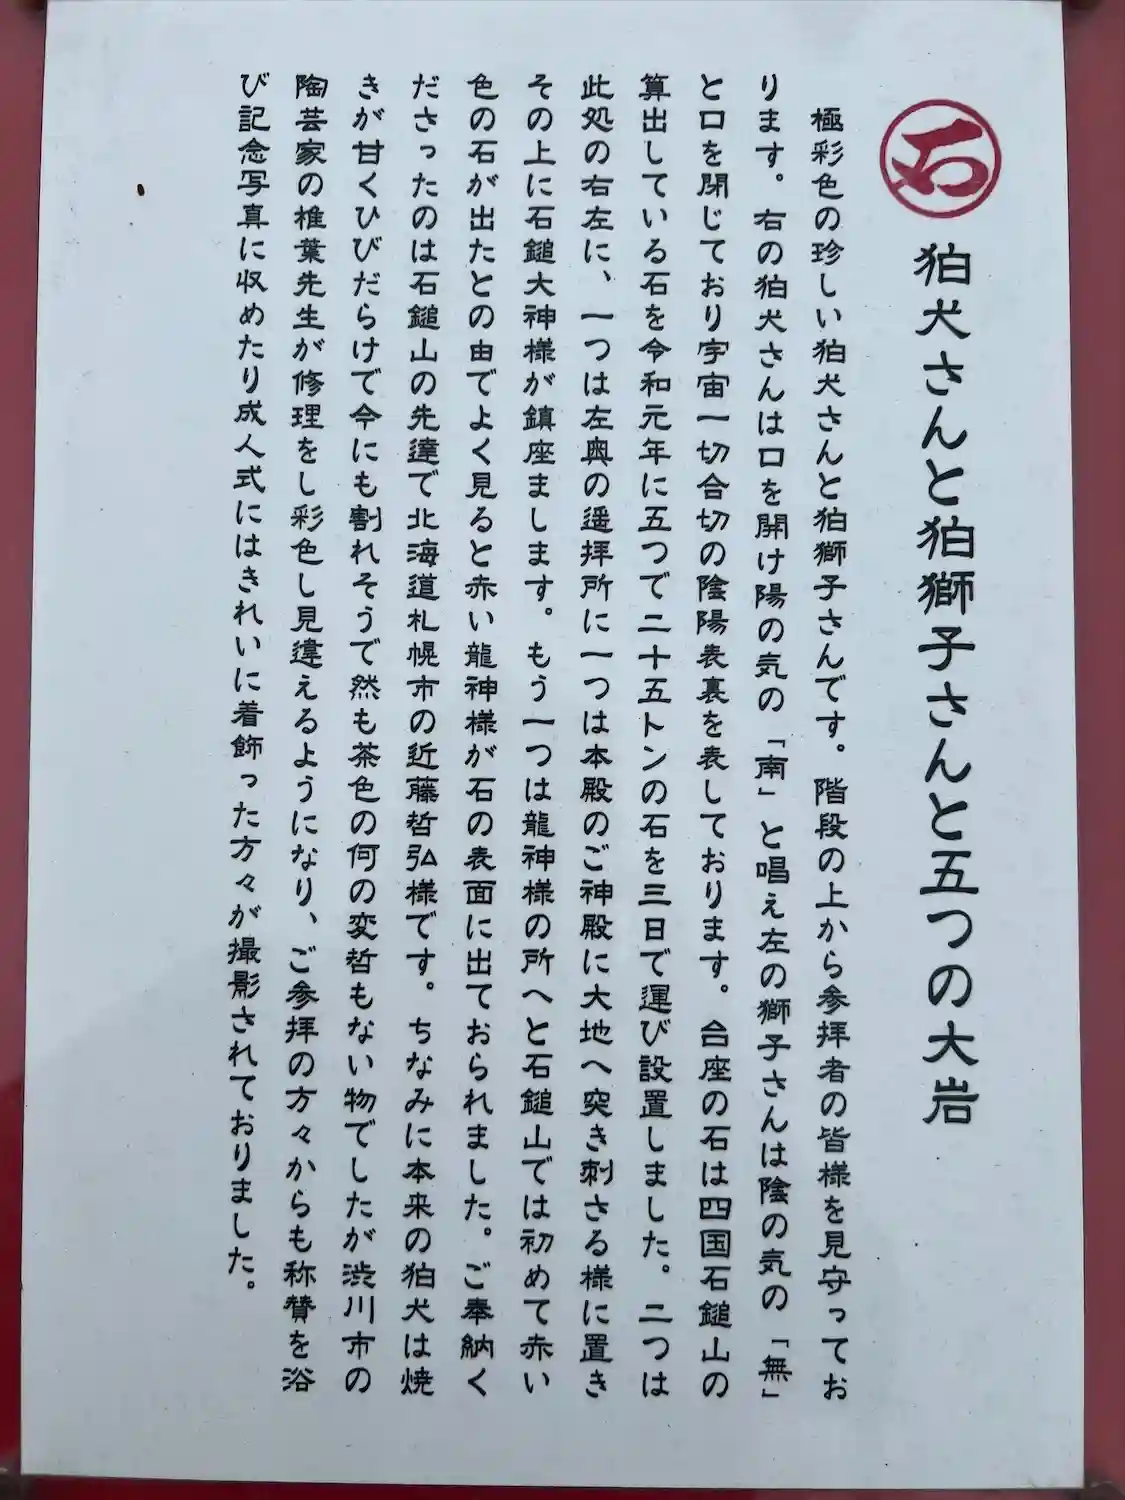 石
狛犬さんと狛獅子さんと五つの大岩
極彩色の珍しい狛犬さんと狛獅子さんです。階段の上から参拝者の皆様を見守ってお
ります。右の狛犬さんは口を開け陽の気の「南」と唱え左の獅子さんは陰の気の「無」
と口を閉じており宇宙一切合切の陰陽表裏を表しております。台座の石は四国石鎚山の
算出している石を令和元年に五つで二十五トンの石を三日で運び設置しました。二つは
此処の右左に、一つは左奥の遥拝所に一つは本殿のご神殿に大地へ突き刺さる様に置き
その上に石鎚大神様が鎮座まします。もう一つは龍神様の所へと石鎚山では初めて赤い
色の石が出たとの由でよく見ると赤い龍神様が石の表面に出ておられました。ご奉納く
ださったのは石鎚山の先達で北海道札幌市の近藤哲弘様です。ちなみに本来の狛犬は焼
きが甘くひびだらけで今にも割れそうで然も茶色の何の変哲もない物でしたが渋川市の
陶芸家の椎葉先生が修理をし彩色し見違えるようになり、ご参拝の方々からも称賛を浴
び記念写真に収めたり成人式にはきれいに着飾った方々が撮影されておりました。